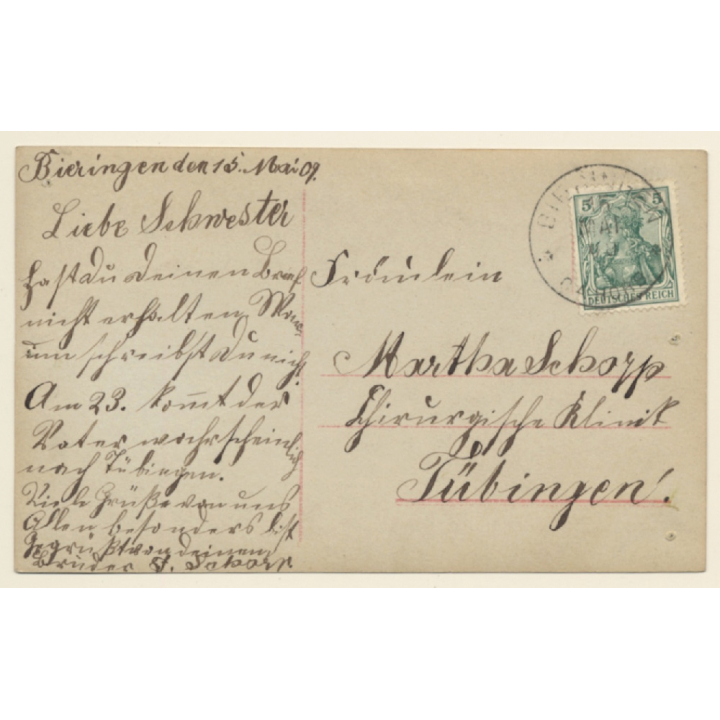 Bieringen den 15. Mai 09.
Liebe Schwester
hast du deinen Brief
nicht erhalten. War-
um schreibst du nicht.
Am 23. kommt der
Vater wahrscheinlich
nach Tübingen.
Viele Grüße von uns
Allen besonders bist
gegrüßt von deinem
Bruder J. Schorp
Fräulein
Martha Schorp
Chirurgische Klinik
Tübingen.
5 5
DEUTSCHES REICH